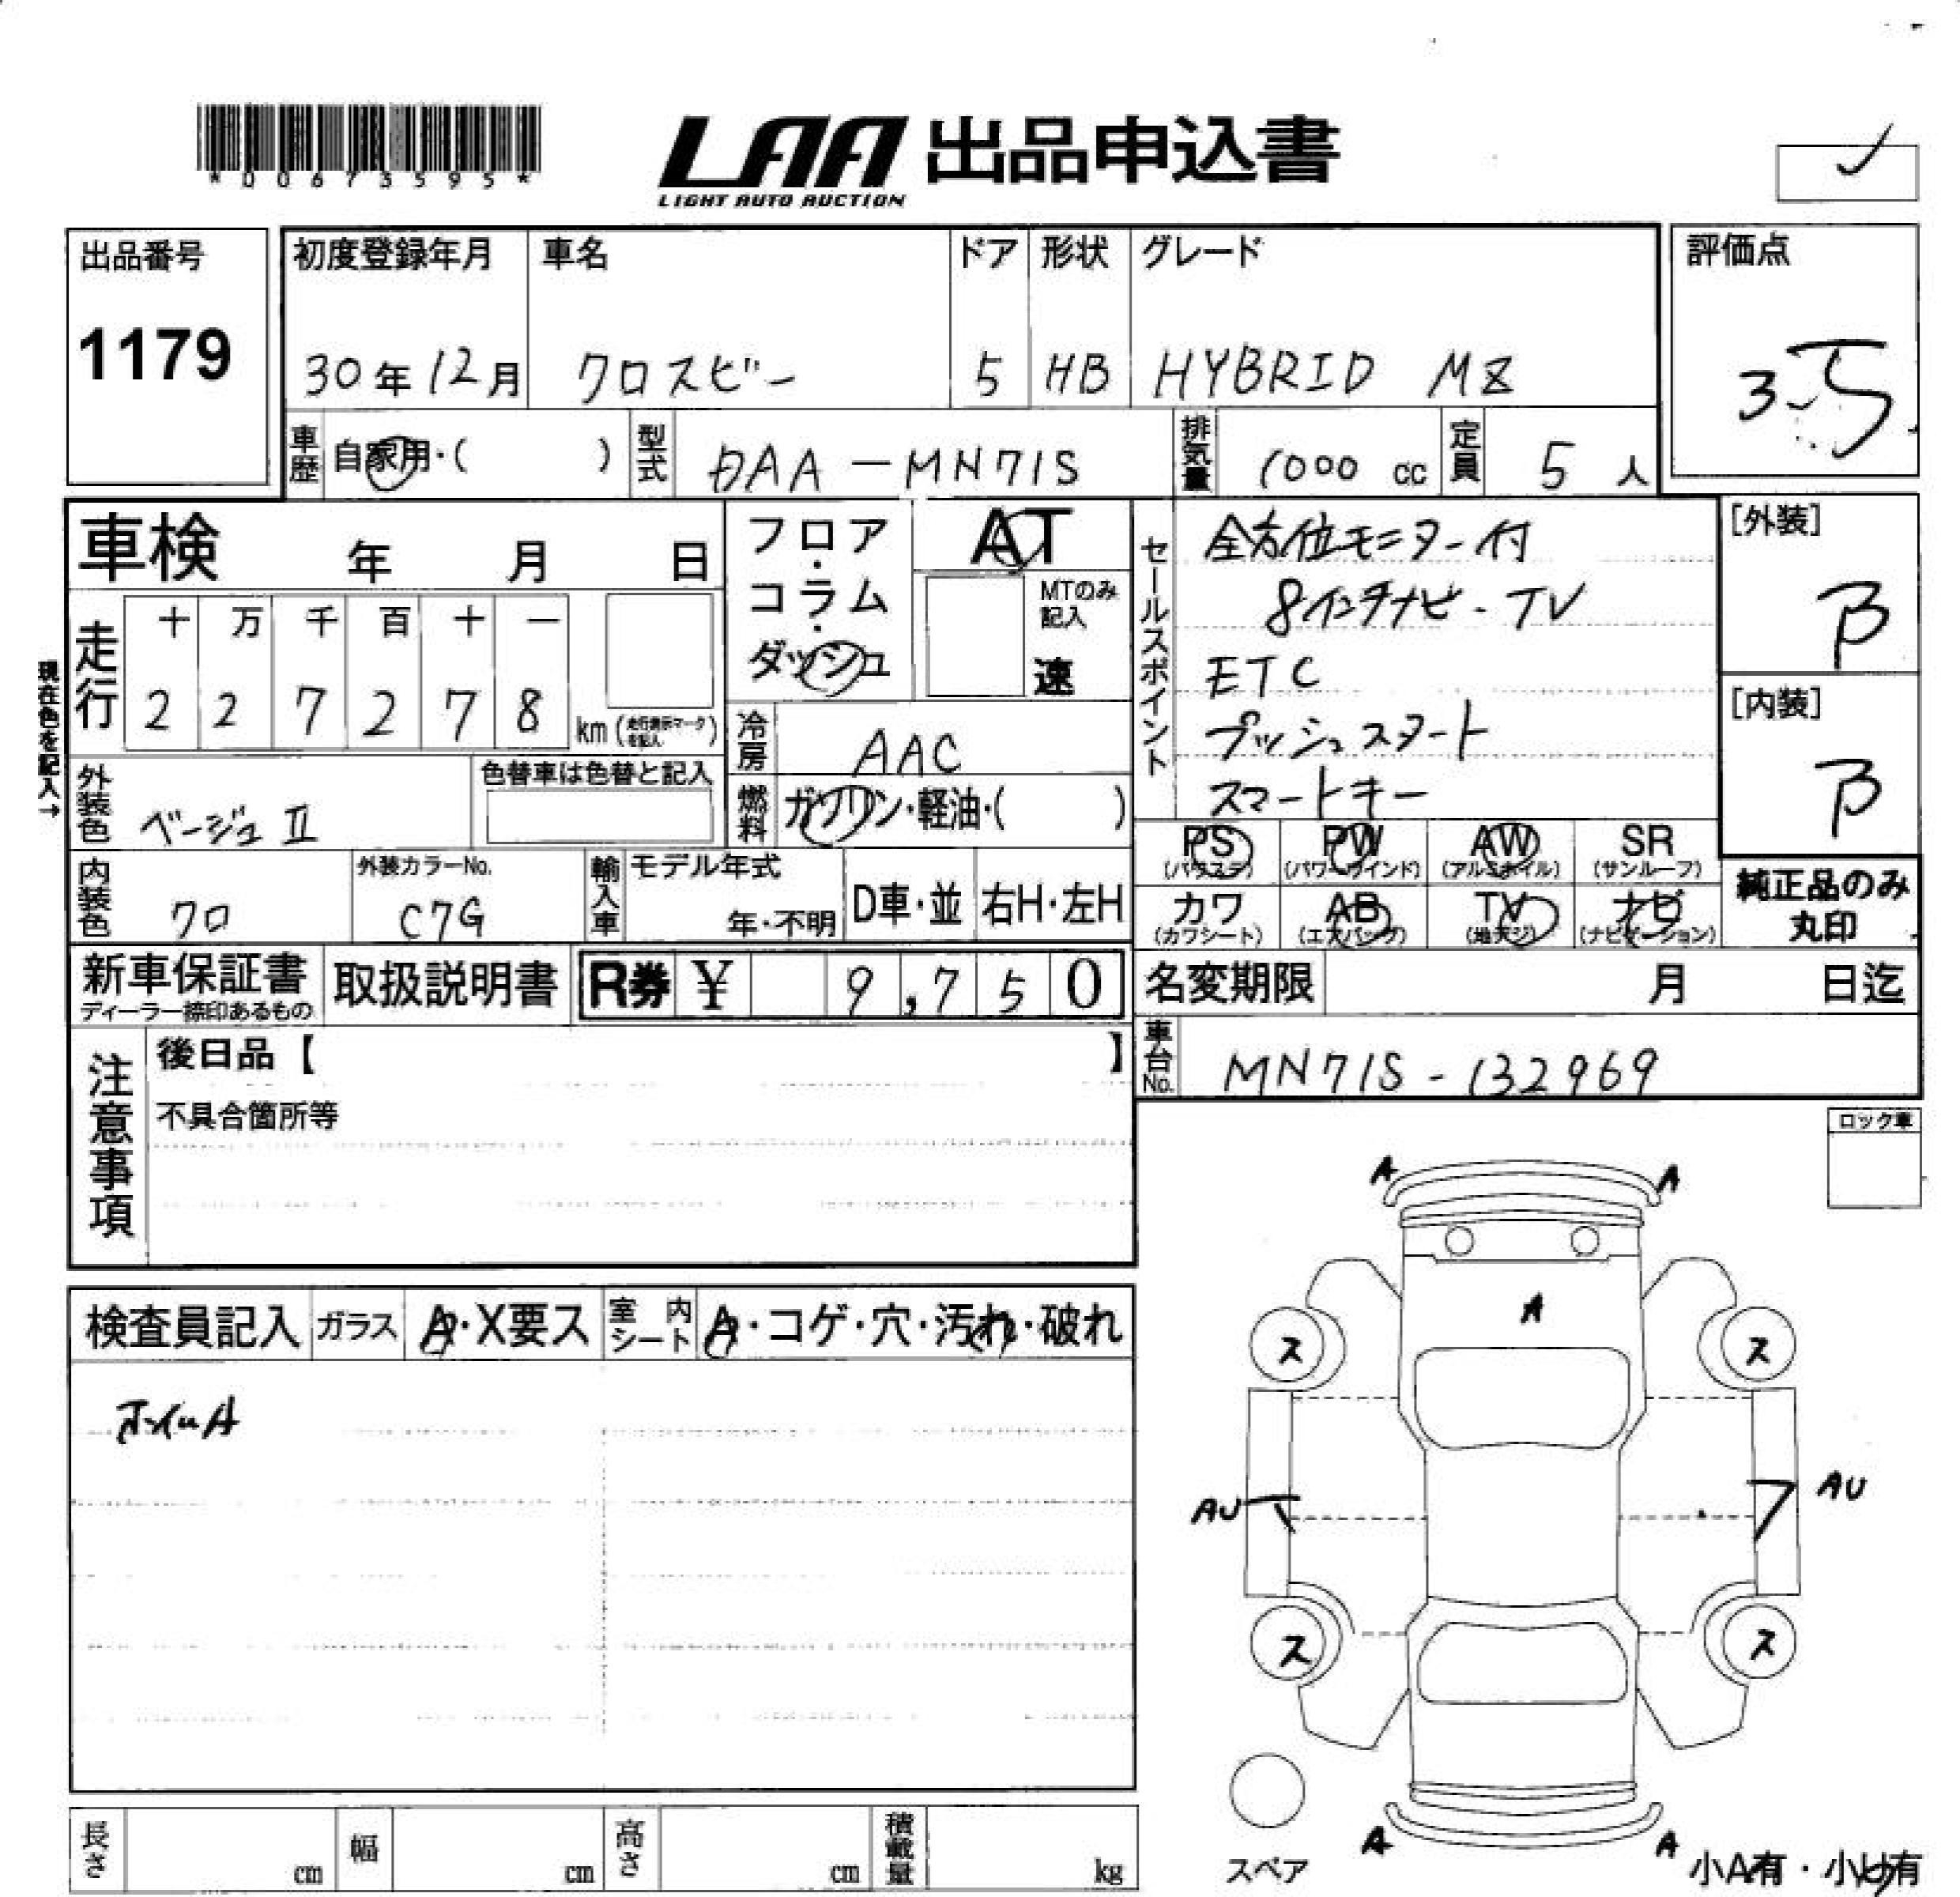 *00673595*
LAA 出品申込書
LIGHT AUTO AUCTION
出品番号
1179
初度登録年月
30年12月
車名
クロスビー
ドア
5
形状
HB
グレード
HYBRID MZ
評価点
3.5
車歴 自家用・( )
型式 DAA-MN71S
排気量 1000 cc
定員 5 人
車検 年 月 日
フロア・コラム・ダッシュ
AT
MTのみ記入
速
現在色を記入→
走行
十 万 千 百 十 一
2 2 7 2 7 8 km (走行表示マークを記入)
冷房 AAC
燃料 ガソリン・軽油・( )
外装色 ベージュⅡ
色替車は色替と記入
内装色 クロ
外装カラーNo.
C7G
輸入車 モデル年式
年・不明
D車・並
右H・左H
セールスポイント
全方位モニター付
8インチナビ-TV
ETC
プッシュスタート
スマートキー
[外装]
B
[内装]
B
PS (パワステ)
PW (パワーウインド)
AW (アルミホイル)
SR (サンルーフ)
カワ (カワシート)
AB (エアバッグ)
TV (地デジ)
ナビ (ナビゲーション)
純正品のみ
丸印
新車保証書
ディーラー捺印あるもの
取扱説明書
R券 ¥ 9,750
名変期限 月 日迄
車台No. MN71S-132969
注意事項
後日品【 】
不具合箇所等
ロック車
検査員記入
ガラス A・X要ス
室内シート A・コゲ・穴・汚れ・破れ
ホイルA
A A
A
ス ス
AU AU
ス ス
スペア
A A
小A有・小U有
長さ cm
幅 cm
高さ cm
積載量 kg